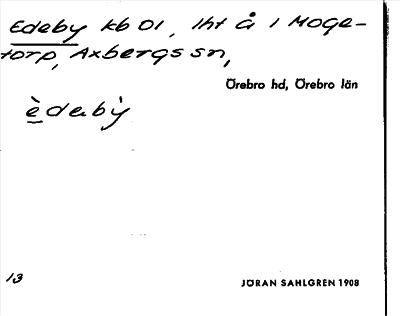 Edeby kb 01, 1ht å i Moge-
torp, Axbergs sn,
Örebro hd, Örebro län
è̲dəbỳ
13
JÖRAN SAHLGREN 1908